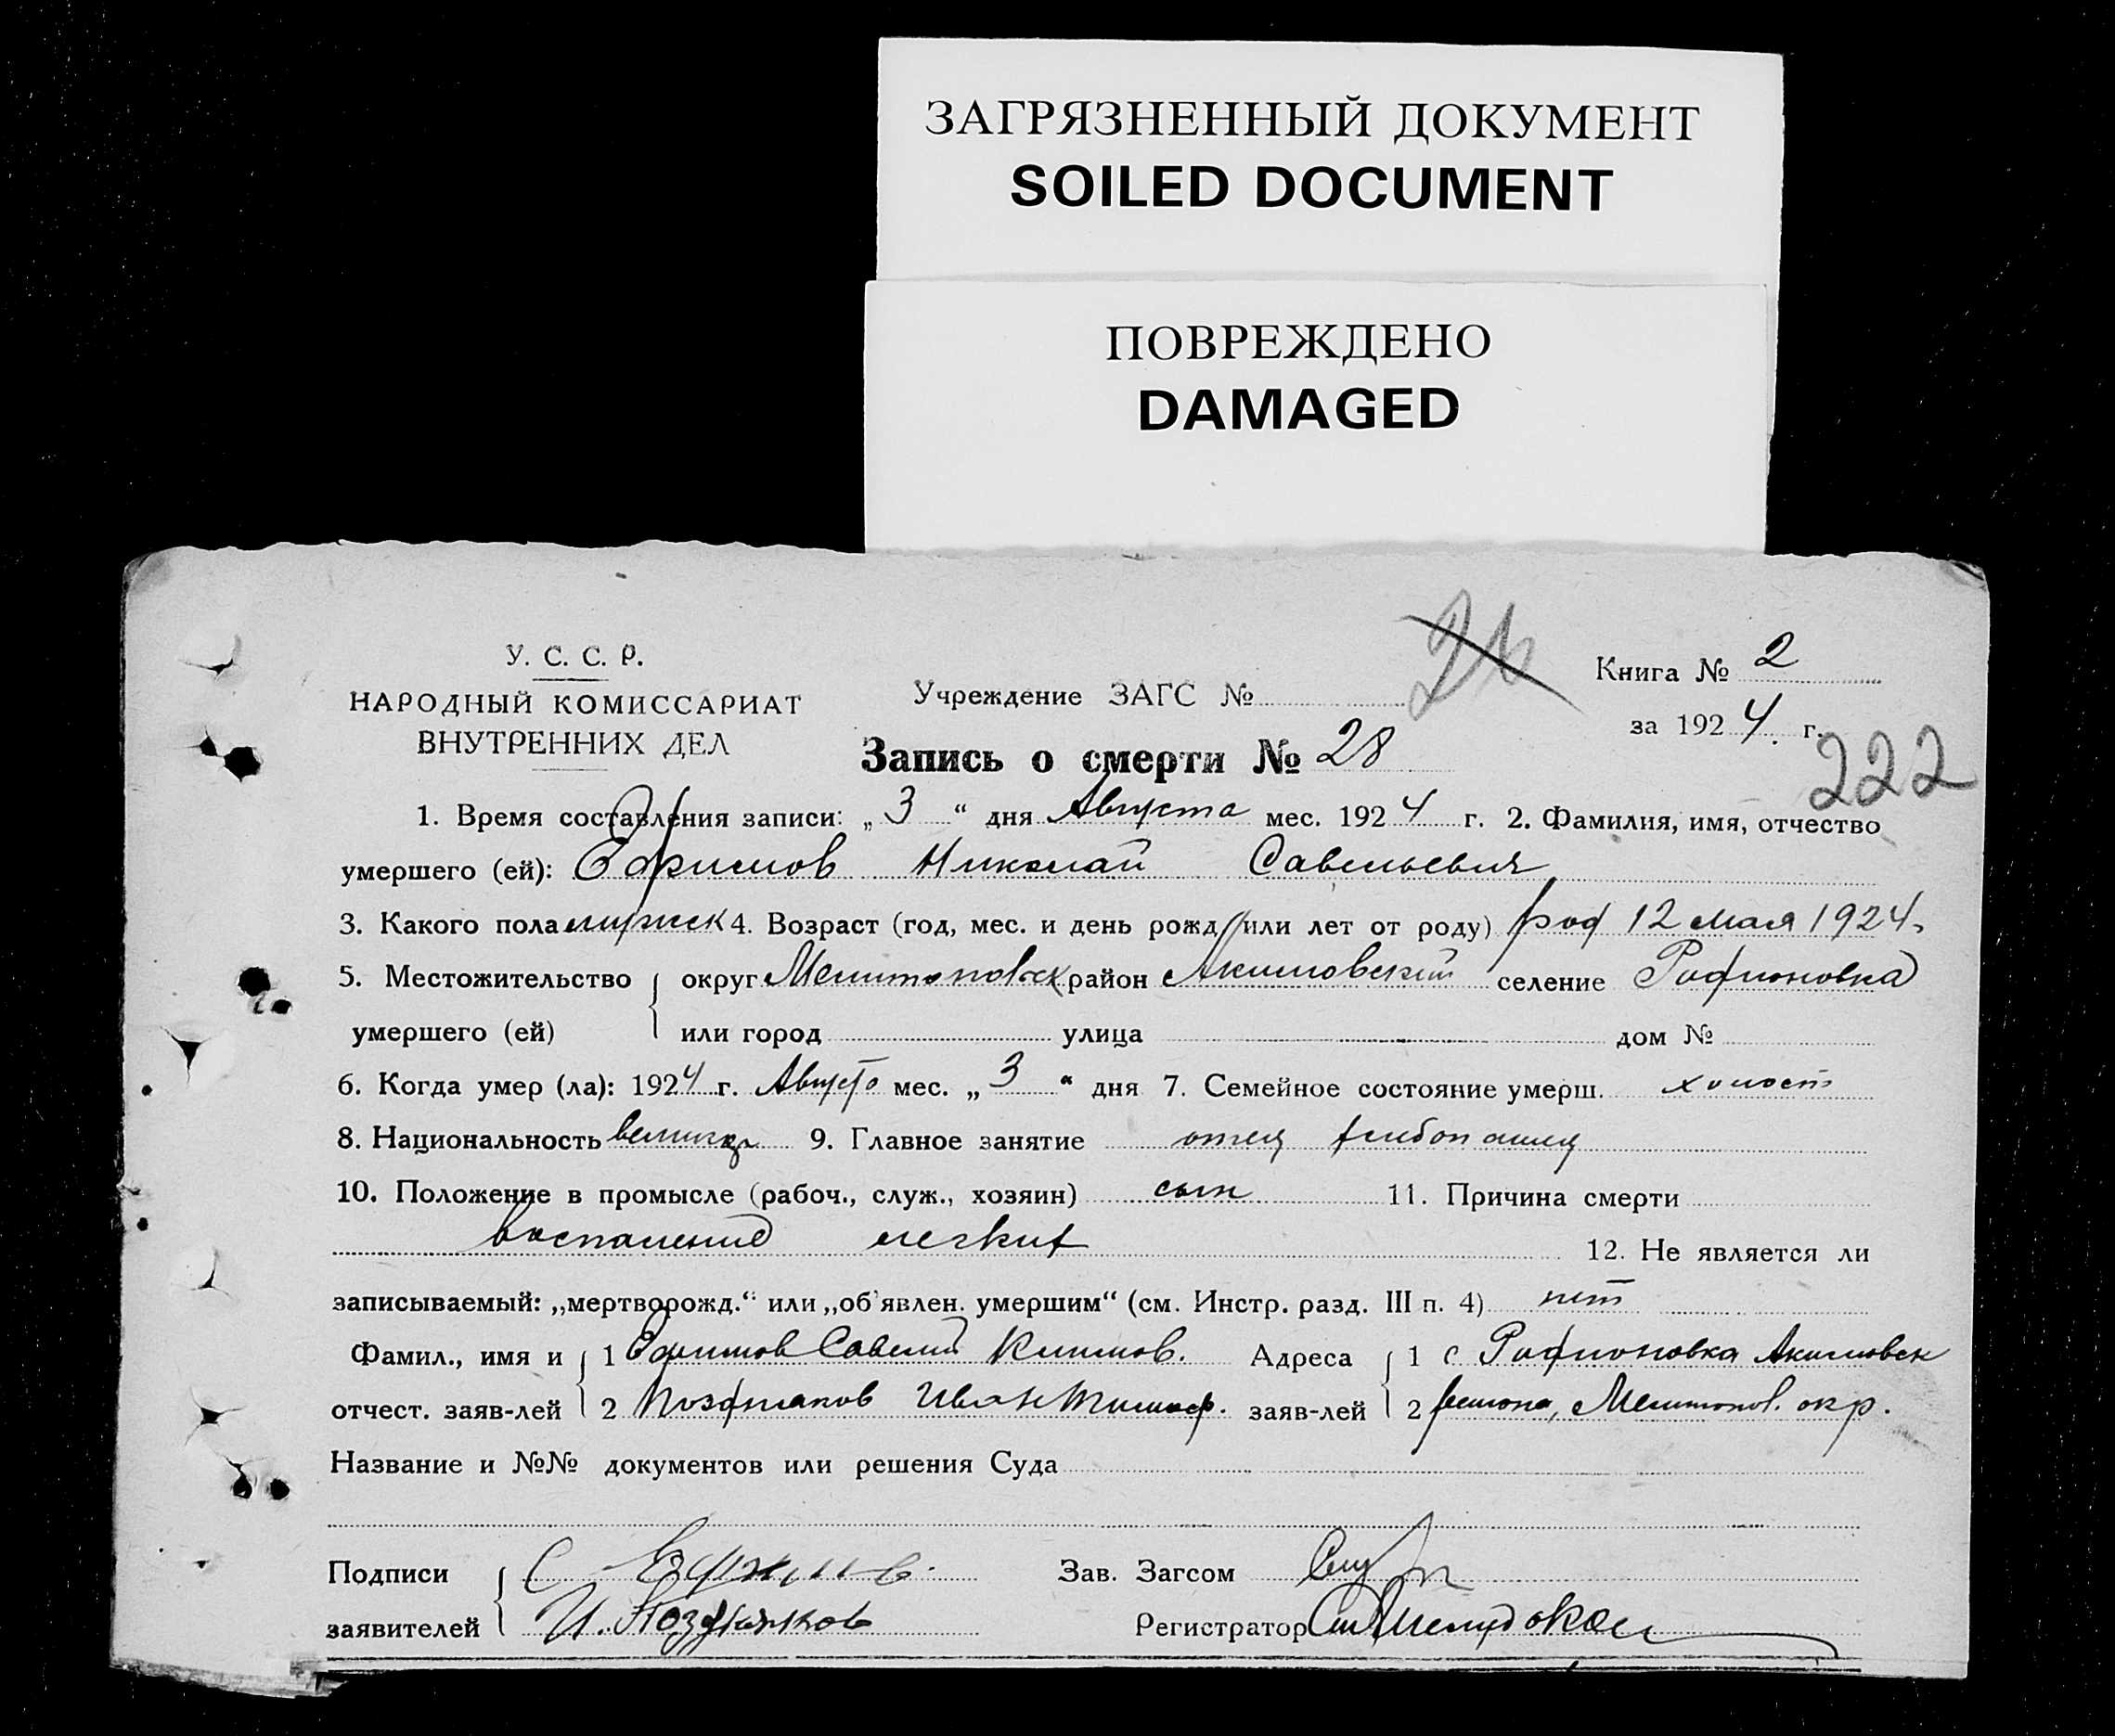 ЗАГРЯЗНЕННЫЙ ДОКУМЕНТ
SOILED DOCUMENT
ПОВРЕЖДЕНО
DAMAGED
У. С. С. Р.
НАРОДНЫЙ КОМИССАРИАТ
ВНУТРЕННИХ ДЕЛ
Учреждение ЗАГС №
Книга № 2
за 1924 г.
222
Запись о смерти № 28
1. Время составления записи: „3“ дня Августа мес. 1924 г. 2. Фамилия, имя, отчество
умершего (ей): Ефимов Николай Савельевич
3. Какого пола мужск 4. Возраст (год, мес. и день рожд. или лет от роду) род 12 мая 1924.
5. Местожительство округ Мелитопольск район Акимовский селение Родионовка
умершего (ей) или город улица дом №
6. Когда умер (ла): 1924 г. Августа мес. „3“ дня 7. Семейное состояние умерш. холост
8. Национальность 9. Главное занятие отец хлебопашец
10. Положение в промысле (рабоч., служ., хозяин) сын 11. Причина смерти
воспаление легких 12. Не является ли
записываемый: „мертворожд.“ или „об'явлен. умершим“ (см. Инстр. разд. III п. 4) нет
Фамил., имя и 1 Ефимов Савелий Климов. Адреса 1 с Родионовка Акимовск
отчест. заяв-лей 2 Поздняков Иван Тимоф. заяв-лей 2 района, Мелитопол. окр.
Название и №№ документов или решения Суда
Подписи С Ефимов. Зав. Загсом
заявителей И. Поздняков Регистратор